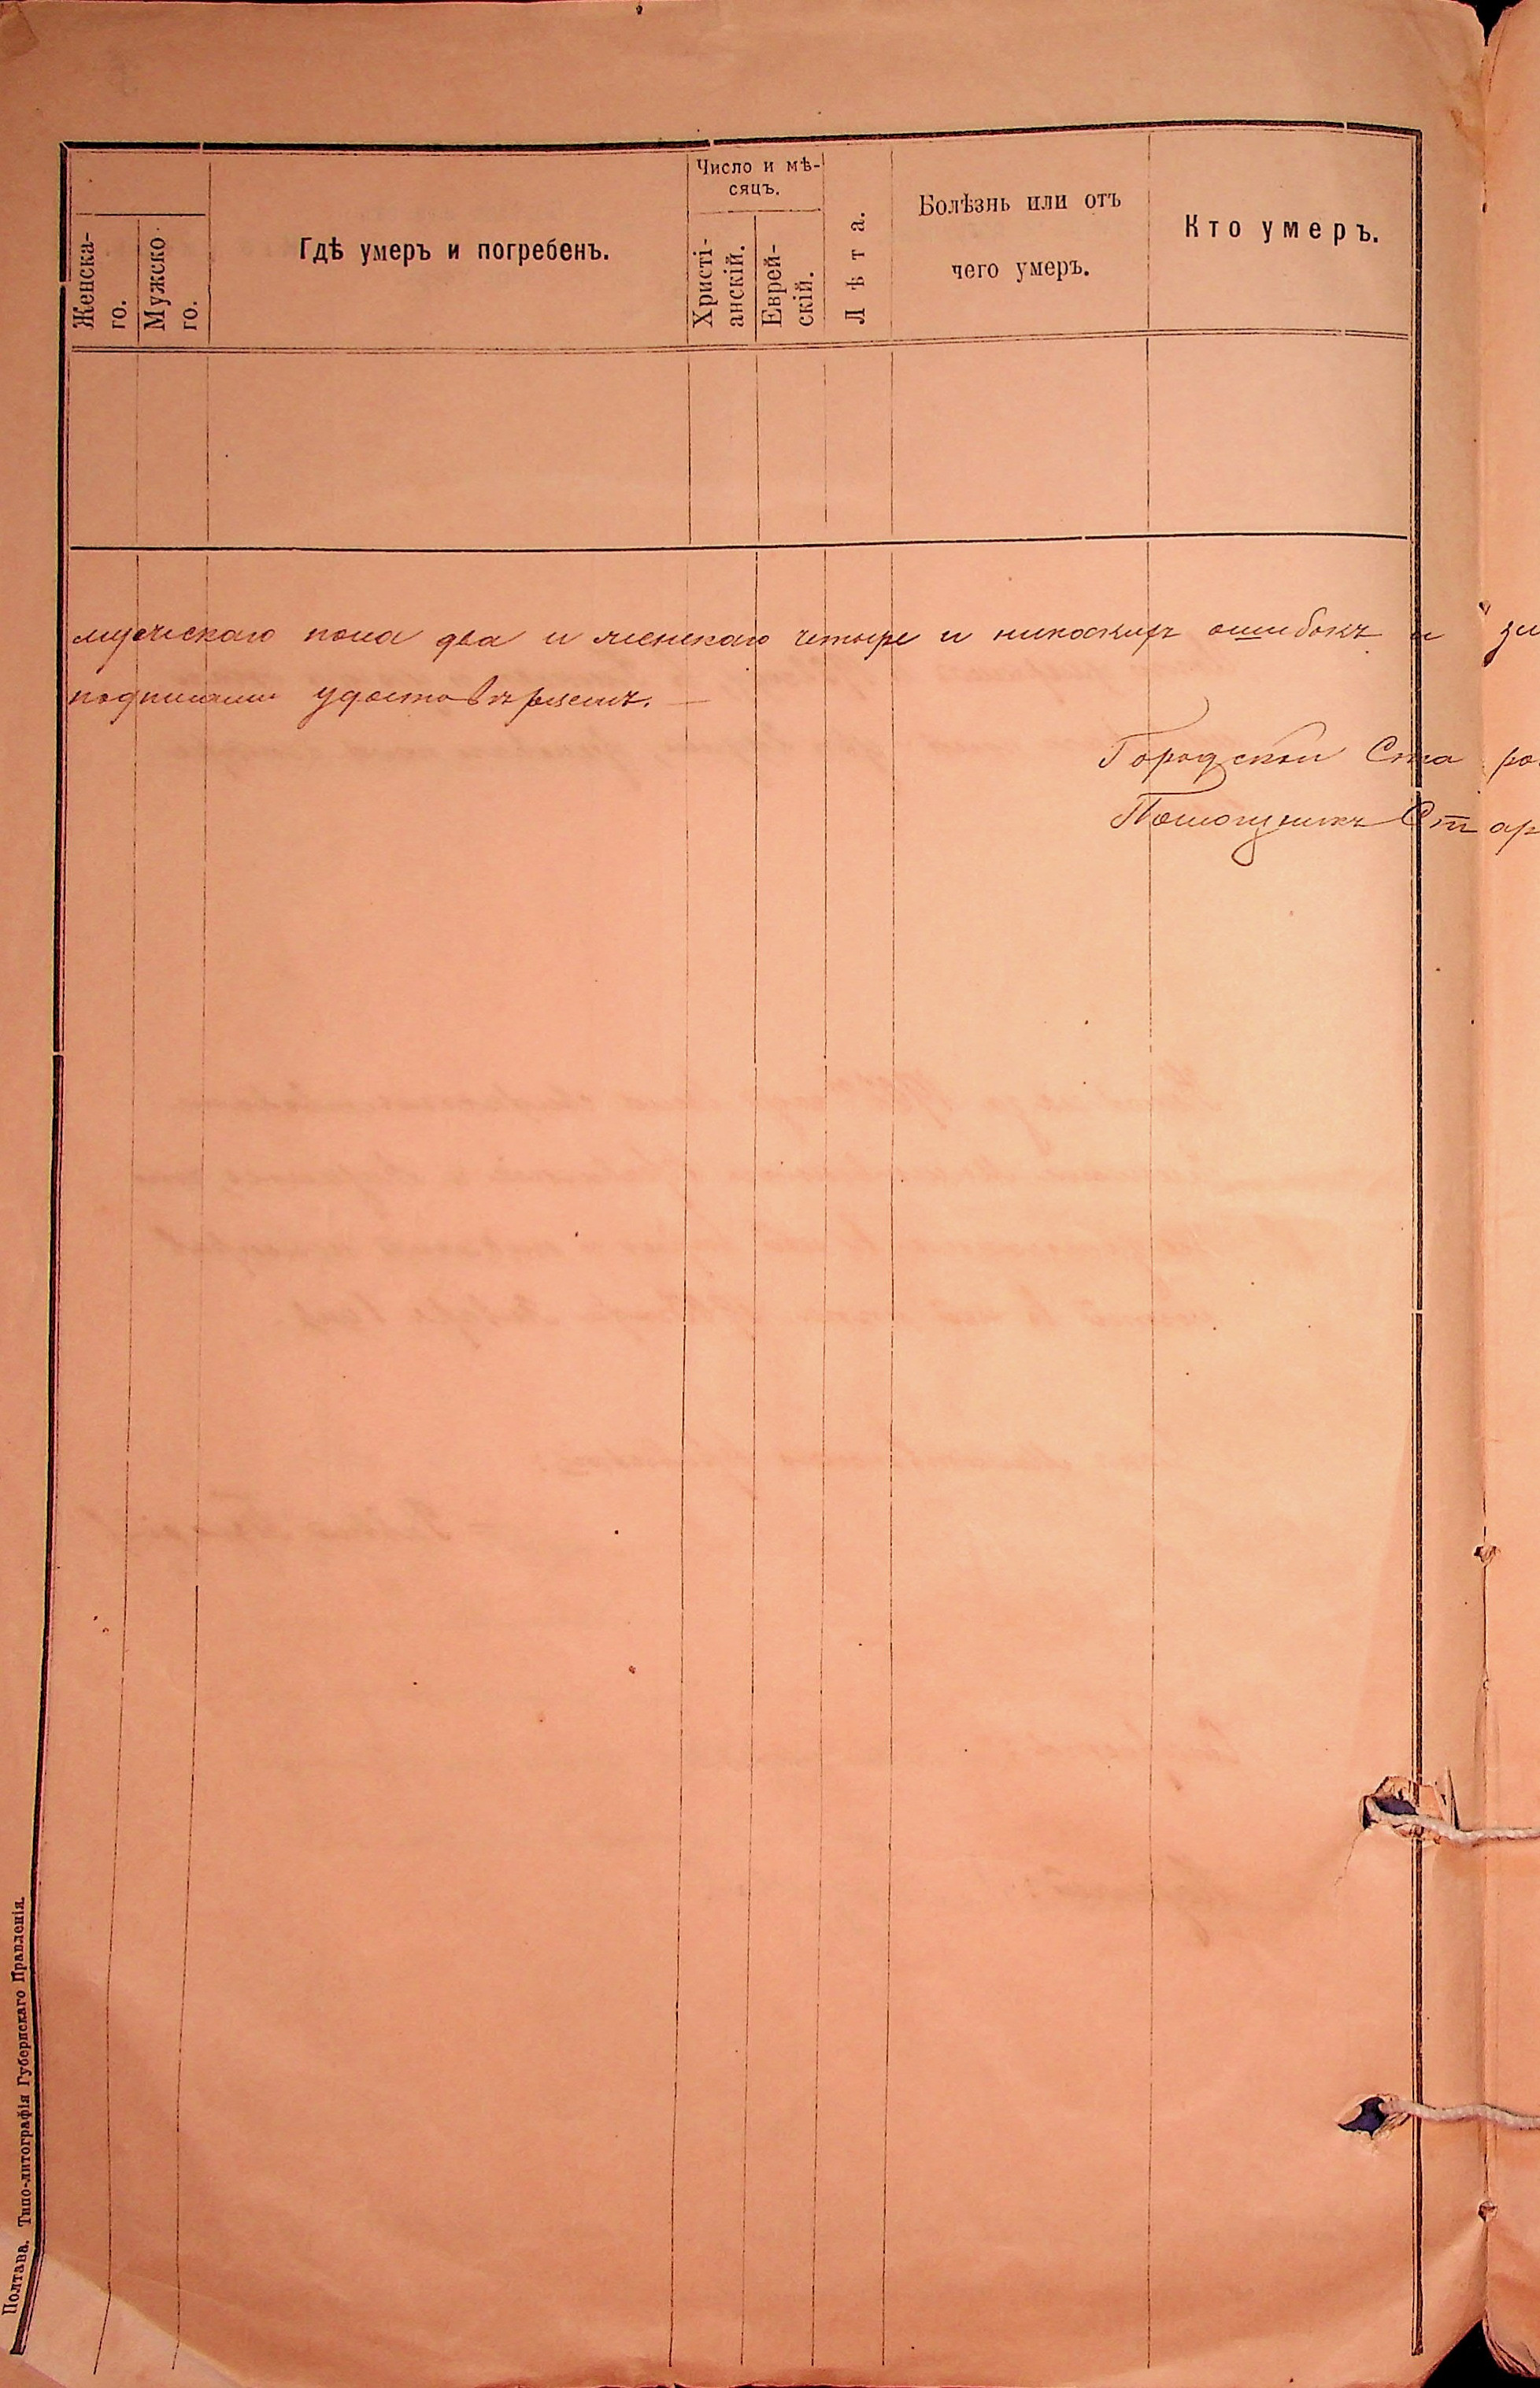 Женска-
го.
Мужско
го.
Гдѣ умеръ и погребенъ.
Число и мѣ-
сяцъ.
Христі-
анскій.
Еврей-
скій.
Лѣта.
Болѣзнь или отъ
чего умеръ.
Кто умеръ.
мужескаго пола два и женскаго четыре и никакихъ ошибокъ и
подписами удостовѣряемъ. —
Городской Ста ро
Помощникъ Ст ар
Полтава. Типо-литографія Губернскаго Правленія.